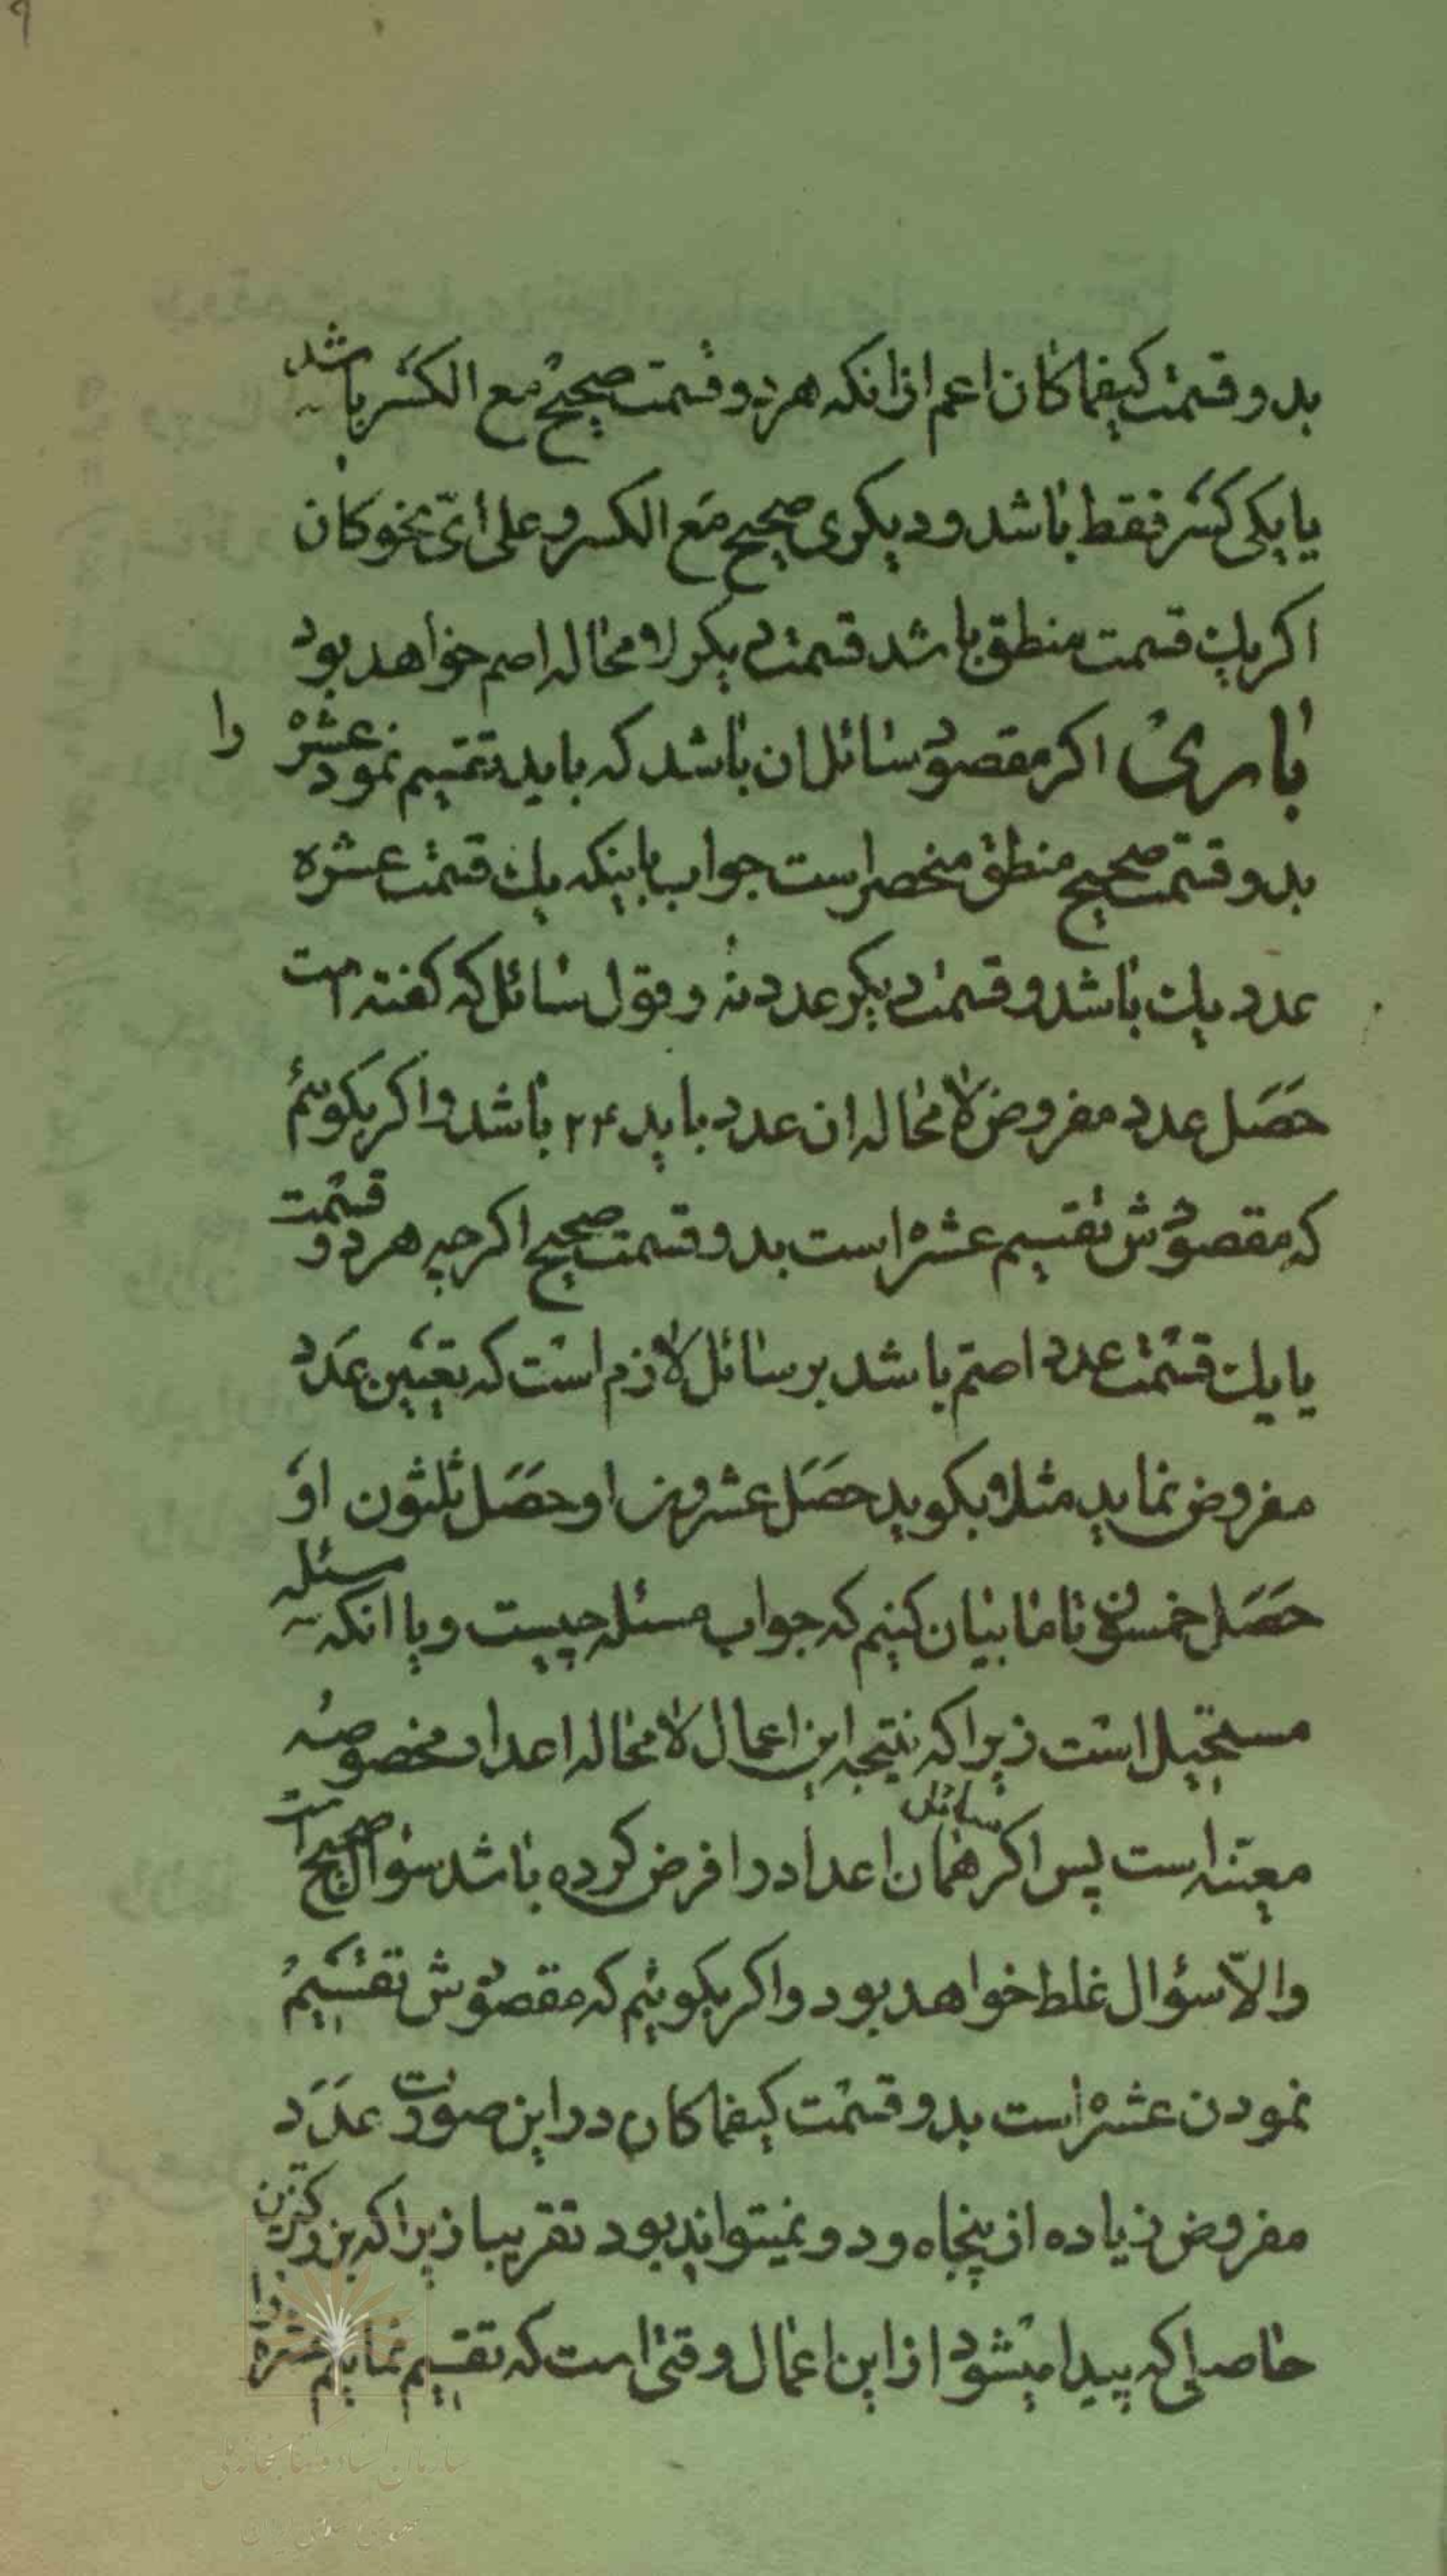 بدو قسمت كیفما كان اعم از انكه هر دو قسمت صحیح مع الكسر باشد
یا یكی كسر فقط باشد و دیكری صحیح مع الكسر و علی ایّ نحو كان
اكر یك قسمت منطق باشد قسمت دیكر لا محاله اصم خواهد بود
باری اكر مقصود سائل ان باشد كه باید تقسیم نمود عشره را
بدو قسمت صحیح منطق منحصر است جواب باینكه یك قسمت عشره
عدد یك باشد و قسمت دیكر عدد نه و قول سائل كه كفته است
حَصَل عدد مفروض لا محاله ان عدد باید ۲۴ باشد و اكر بكوئیم
كه مقصودش تقسیم عشره است بدو قسمت صحیح اكر چه هر دو قسمت
یا یك قسمت عدد اصم باشد بر سائل لازم است كه تعیین عَدَد
مفروض نماید مثلا بكوید حَصَل عشرون او حَصَل ثلثون او
حَصَل خمسون تا ما بیان كنیم كه جواب مسئله چیست و یا انكه مسئله
مستحیل است زیرا كه نتیجه این اعمال لا محاله اعداد مخصوصه
معینه است پس اكر سائل همان اعداد را فرض كرده باشد سؤال صحیح است
والّا سؤال غلط خواهد بود و اكر بكوئیم كه مقصودش تقسیم
نمودن عشره است بدو قسمت كیفما كان در این صورت عَدَد
مفروض زیاده از پنجاه و دو نمیتواند بود تقریبا زیرا كه بزركترین
حاصلی كه پیدا میشود از این اعمال وقتی است كه تقسیم نمایم عشره را
سازمان اسناد و كتابخانه ملی
جمهوری اسلامی ایران